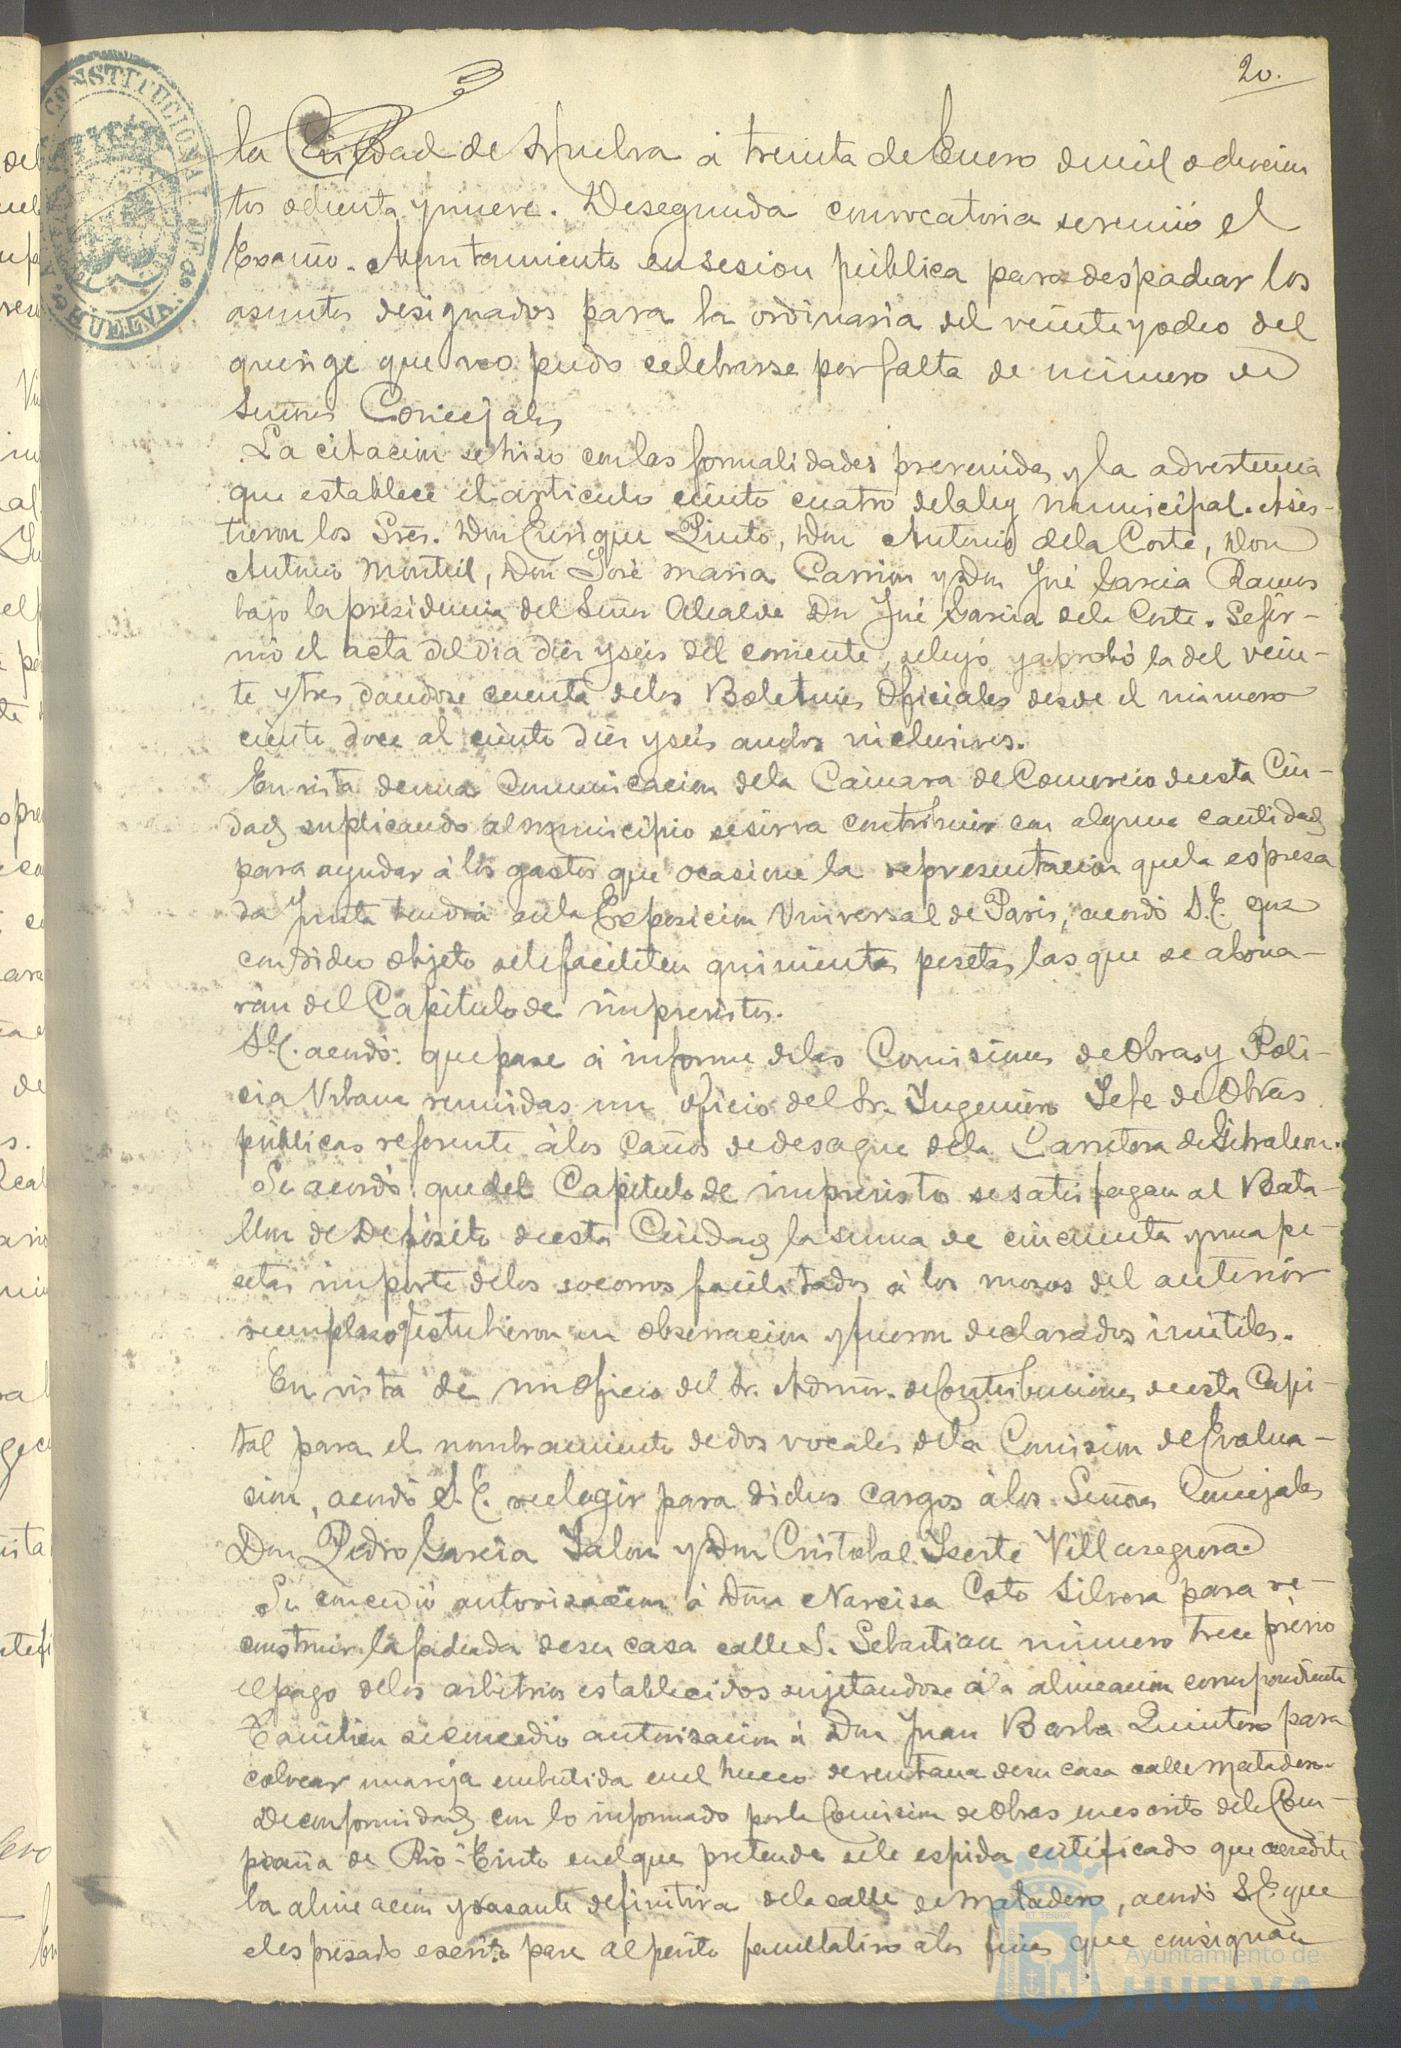 20.
la Ciudad de Huelva á treinta de Enero de mil ochocien
tos ochenta y nueve. De segunda convocatoria se reunió el
Excmo. Ayuntamiento en sesion pública para despachar los
asuntos designados para la ordinaria del veinte y ocho del
que rige que no pudo celebrarse por falta de número de
Señores Concejales
La citacion se hizo con las formalidades prevenidas y la advertencia
que establece el articulo ciento cuatro de la ley municipal. Asis-
tieron los Sres. Don Enrique Pinto, Don Antonio de la Corte, Don
Antonio Montiel, Don José Maria Carrion y Don José Garcia Ramos
bajo la presidencia del Señor Alcalde Don José Garcia de la Corte. Se fir-
mó el acta del dia diez y seis del corriente, se leyó y aprobó la del vein-
te y tres dandose cuenta de los Boletines Oficiales desde el número
ciento doce al ciento diez y seis ambos inclusives.
En vista de una Comunicacion de la Cámara de Comercio de esta Ciu-
dad suplicando al municipio se sirva contribuir con alguna cantidad
para ayudar á los gastos que ocasione la representacion que la espresa
da Junta tendrá en la Exposicion Universal de Paris, acordó S.E. que
con dicho objeto se le faciliten quinientas pesetas, las que se abona-
rán del Capitulo de imprevistos.
S.E. acordó: que pase á informe de las Comisiones de Obras y Poli-
cia Urbana reunidas un oficio del Sr. Ingeniero Jefe de Obras
públicas referente á los caños de desague de la Carretera de Gibraleon.
Se acordó: que del Capitulo de imprevisto se satisfagan al Bata-
llon de Depósito de esta Ciudad la suma de cincuenta y una pe-
setas importe de los socorros facilitados á los mozos del anterior
reemplazo q. estubieron en observacion y fueron declarados inútiles.
En vista de un Oficio del Sr. Admor. de Contribuciones de esta Capi-
tal para el nombramiento de dos vocales de la Comision de Evalua-
cion, acordó S.E. reelegir para dichos cargos á los Señores Concejales
Don Pedro Garcia Jalon y Don Cristobal Iserte Villasegura
Se concedió autorizacion á Don Narcisa Coto Silvera para re-
construir la fachada de su casa calle S. Sebastian número trece prévio
el pago de los arbitrios establecidos sujetandose á la alineacion correspondiente
Tambien se concedió autorizacion á Don Juan Barba Quintero para
colocar una reja embutida en el hueco de ventana de su casa calle Matadero.
De conformidad con lo informado por la Comision de Obras en escrito de la Com-
pañia de Rio-Tinto en el que pretende se le espida certificado que acredite
la alineacion y rasante definitiva de la calle de Matadero, acordó S.E. que
el espresado escrito pase al perito facultativo á los fines que consignan
CONSTITUCIONAL DE
HUELVA
Ayuntamiento de
HUELVA